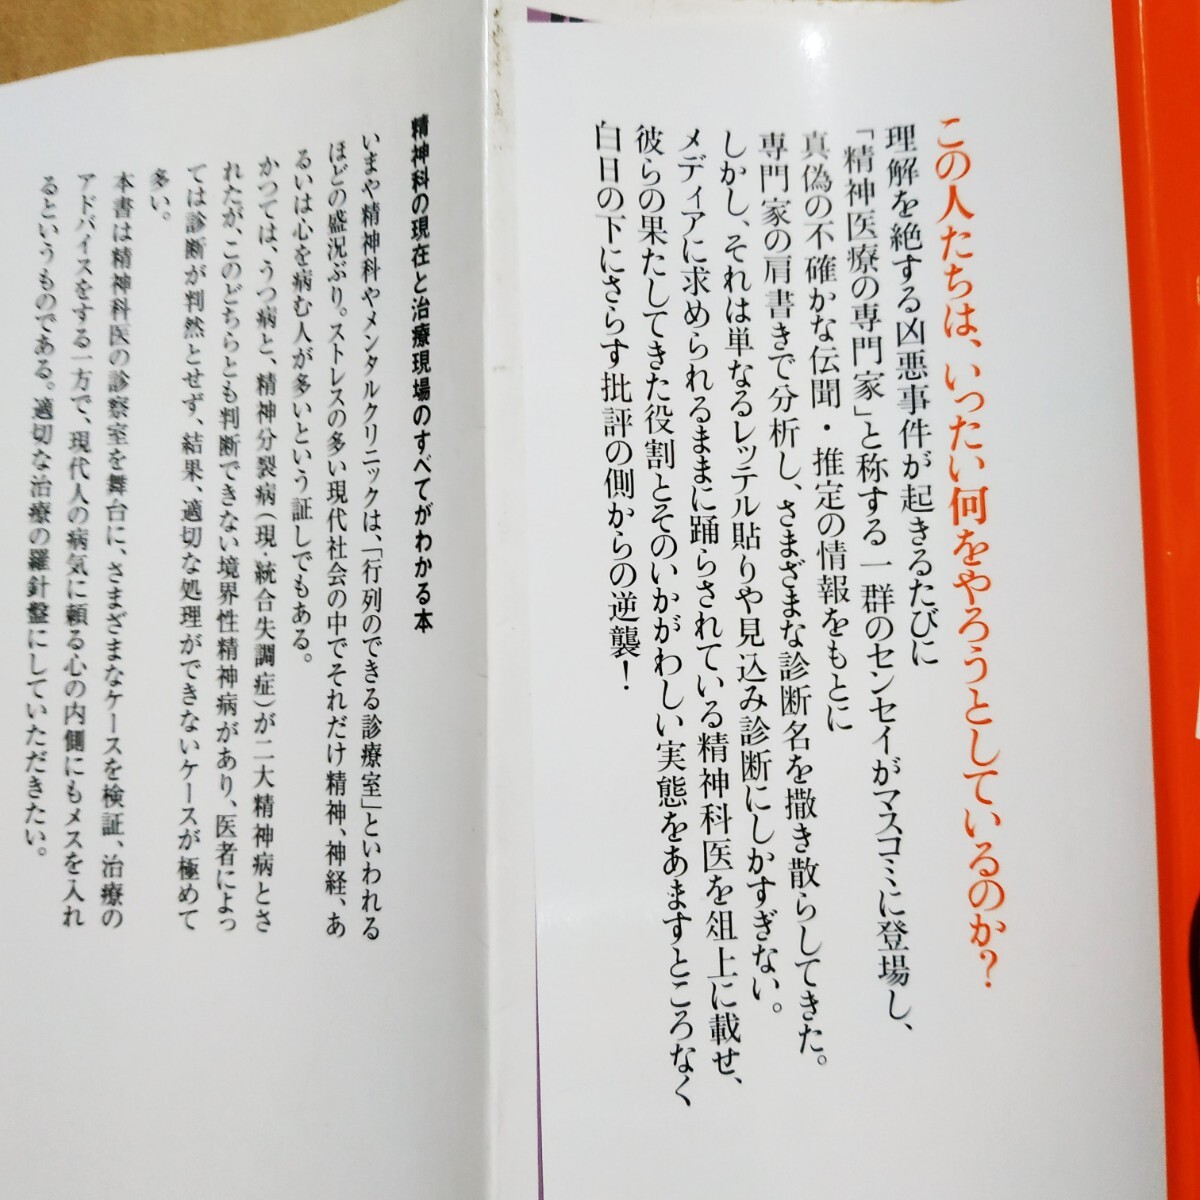 この人たちは、いったい何をやろうとしているのか?
理解を絶する凶悪事件が起きるたびに
「精神医療の専門家」と称する一群のセンセイがマスコミに登場し、
真偽の不確かな伝聞・推定の情報をもとに
専門家の肩書きで分析し、さまざまな診断名を撒き散らしてきた。
しかし、それは単なるレッテル貼りや見込み診断にしかすぎない。
メディアに求められるままに踊らされている精神科医を俎上に載せ、
彼らの果たしてきた役割とそのいかがわしい実態をあますところなく
白日の下にさらす批評の側からの逆襲!
精神科の現在と治療現場のすべてがわかる本
いまや精神科やメンタルクリニックは、「行列のできる診療室」といわれる
ほどの盛況ぶり。ストレスの多い現代社会の中でそれだけ精神、神経、あ
るいは心を病む人が多いという証しでもある。
かつては、うつ病と、精神分裂病(現・統合失調症)が二大精神病とさ
れたが、このどちらとも判断できない境界性精神病があり、医者によっ
ては診断が判然とせず、結果、適切な処理ができないケースが極めて
多い。
本書は精神科医の診察室を舞台に、さまざまなケースを検証、治療の
アドバイスをする一方で、現代人の病気に頼る心の内側にもメスを入れ
るというものである。適切な治療の羅針盤にしていただきたい。